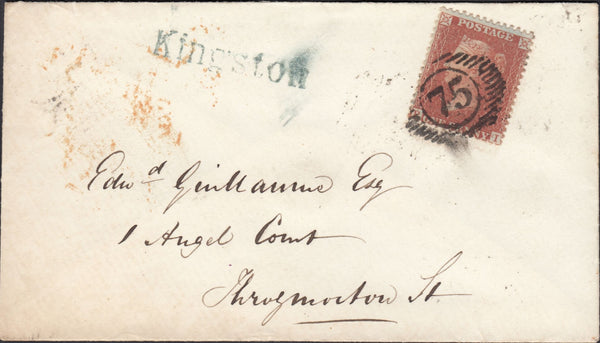 Kingston
POSTAGE
75
Edwd Guillaume Esq
1 Angel Court
Throgmorton St.